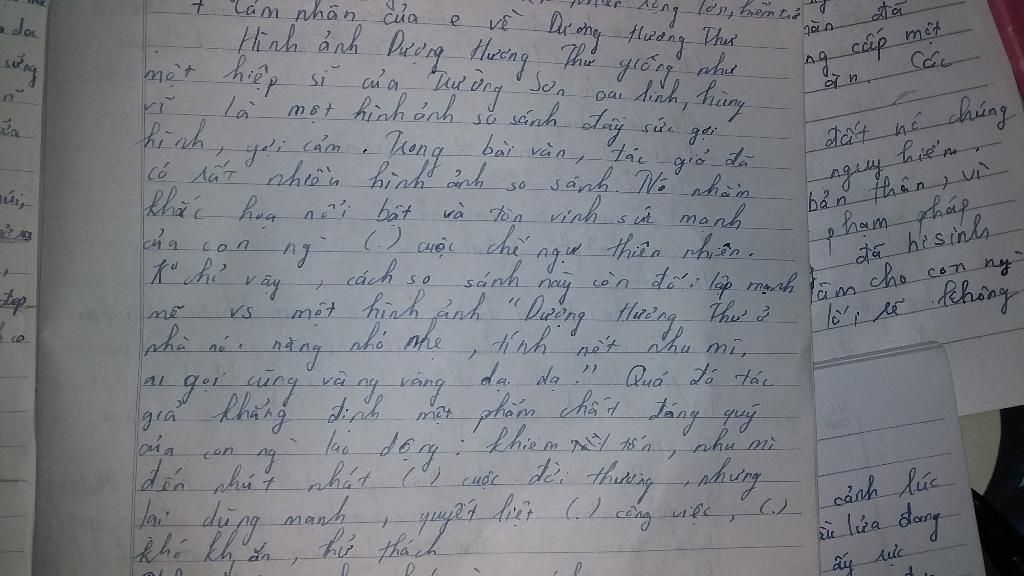 + Cảm nhận của e về Dương Hương Thư
Hình ảnh Dượng Hương Thư giống như
một hiệp sĩ của Trường Sơn oai linh, hùng
vĩ là một hình ảnh so sánh đầy sức gợi
hình, gợi cảm. Trong bài văn, tác giả đã
có rất nhiều hình ảnh so sánh. Nó nhằm
khắc hoạ nổi bật và tôn vinh sức mạnh
của con ng` (.) cuộc chế ngự thiên nhiên.
K° chỉ vậy, cách so sánh này còn đối lập mạnh
mẽ vs một hình ảnh "Dượng Hương Thư ở
nhà nói năng nhỏ nhẹ, tính nết nhu mì,
ai gọi cũng vâng vâng dạ dạ." Quá đó tác
giả khẳng định một phẩm chất đáng quý
của con ng` lao động: khiêm tốn, nhu mì
đến nhút nhát (.) cuộc đời thường, nhưng
lại dũng mạnh, quyết liệt (.) công việc, (.)
khó khăn, thử thách
đã
ng cấp một
ản. Các
đất nó chúng
nguy hiểm.
bản thân, vì
phạm pháp
đã hi sinh
làm cho con ng`
lối, sẽ không
cảnh lúc
lửa đang
ấy rực